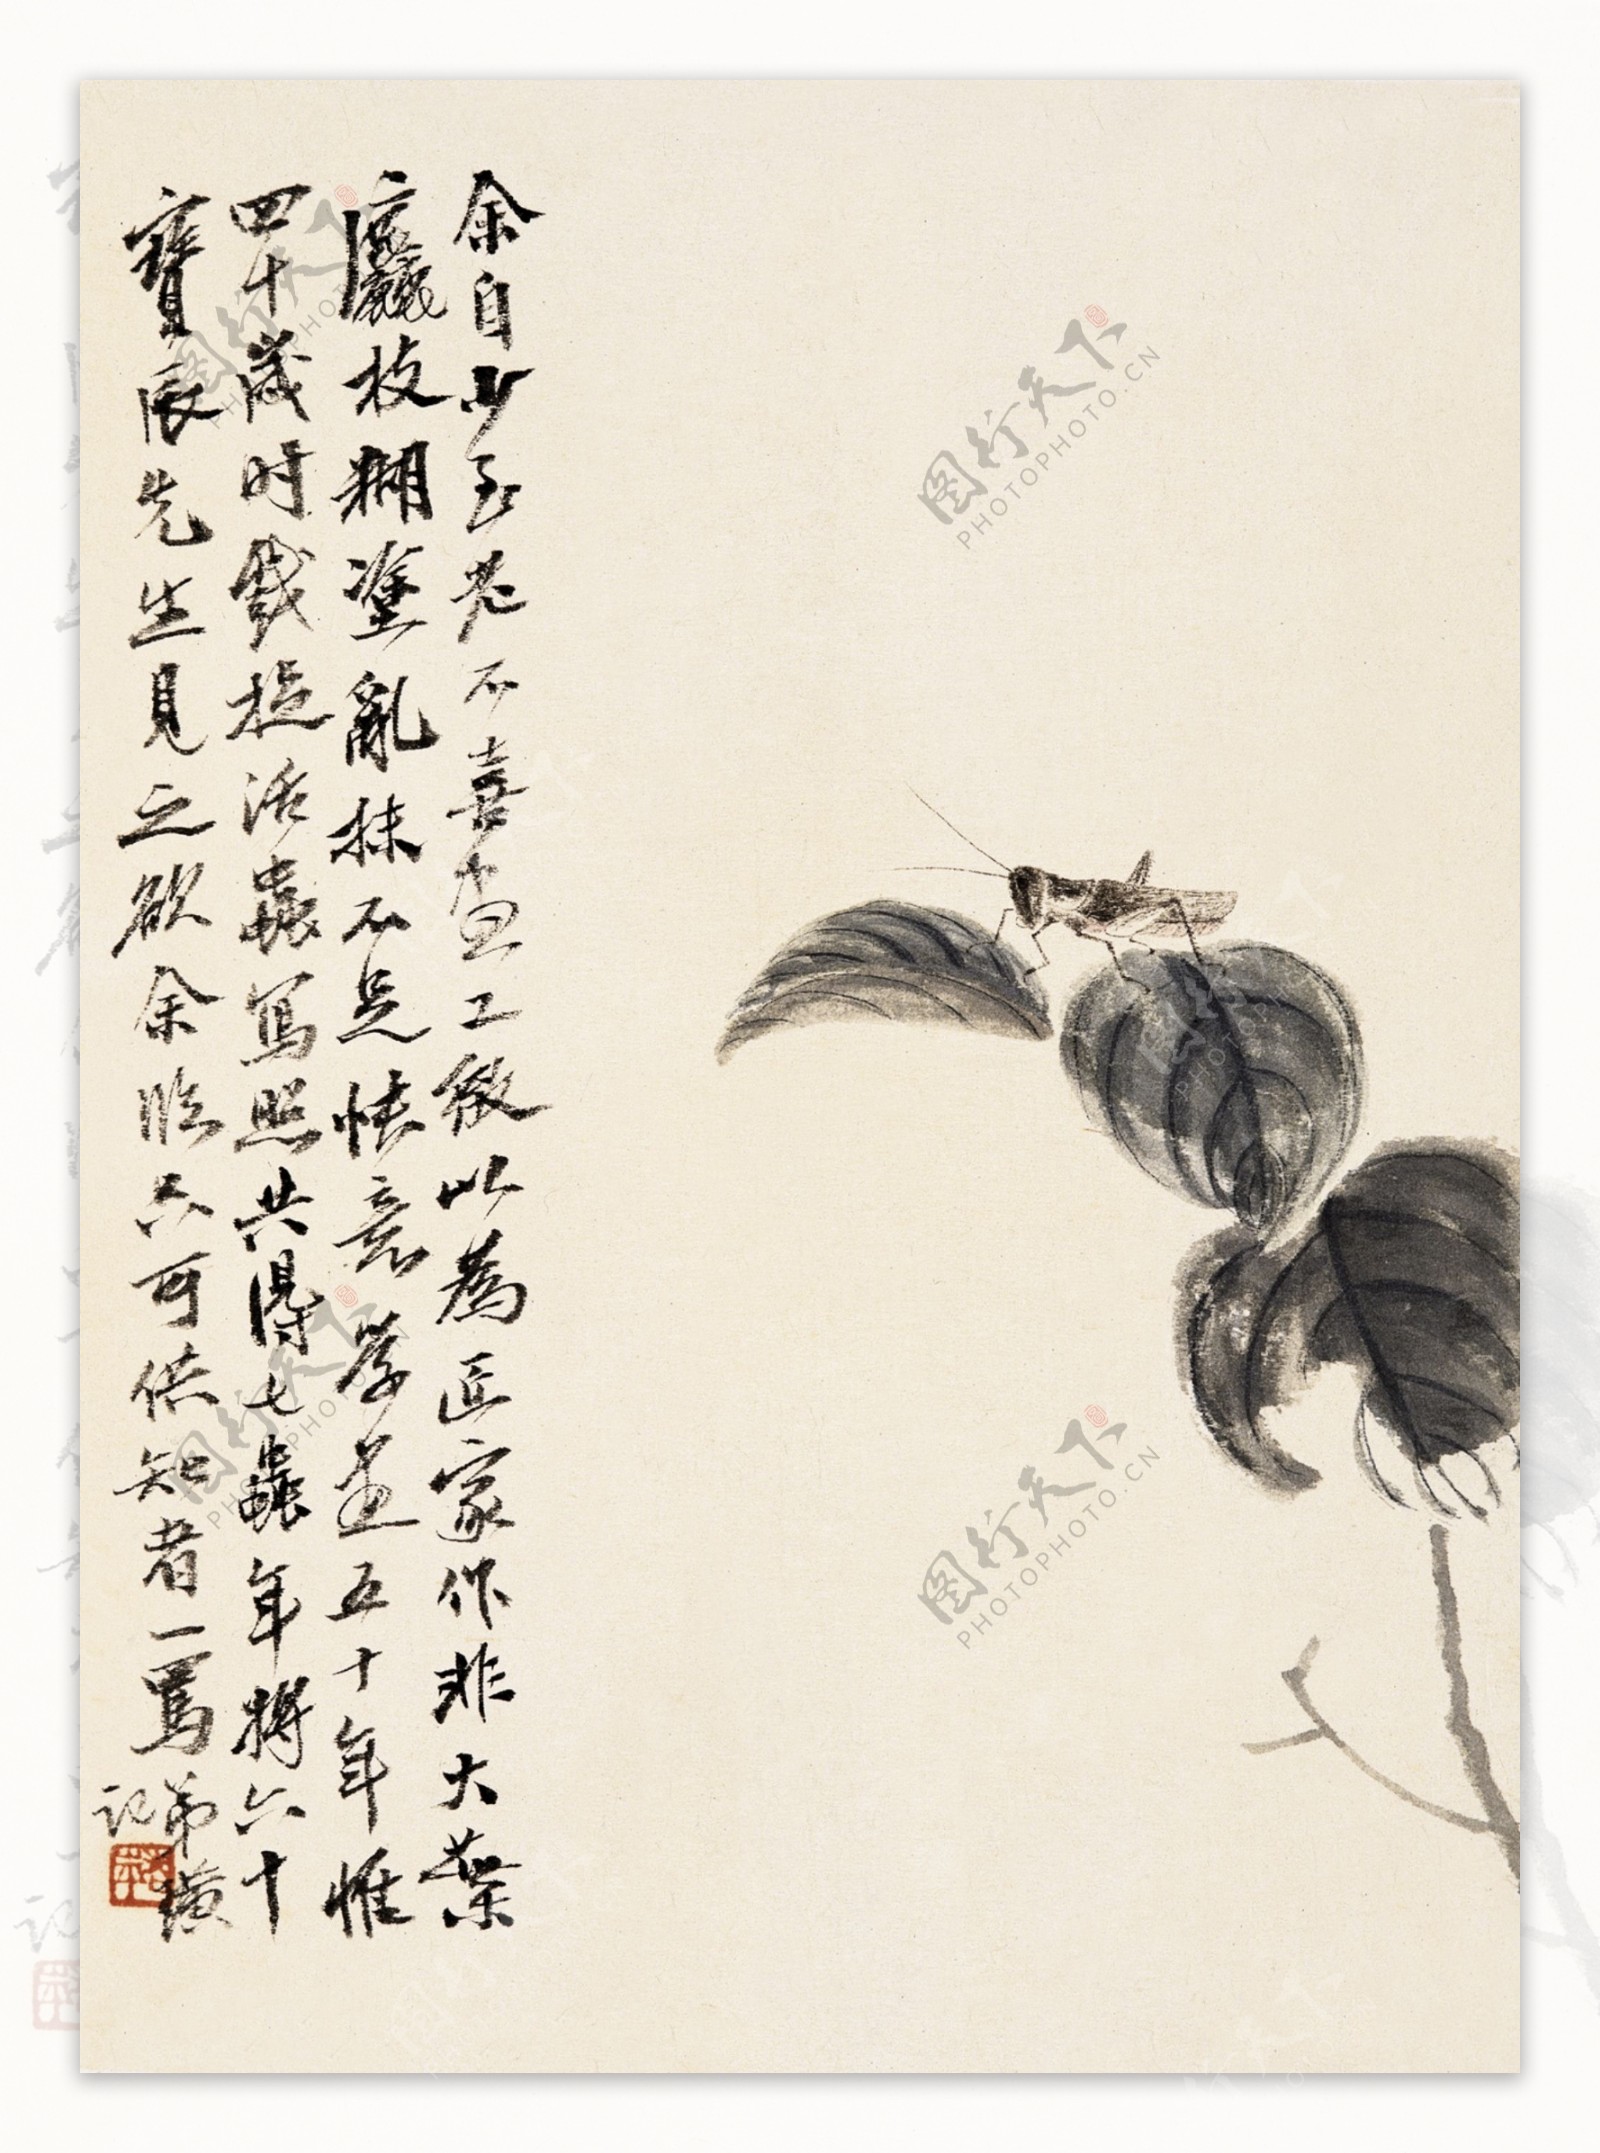 余自少至老不喜畫工緻以為匠家作非大葉
麤枝糊塗亂抹不足快意學畫五十年惟
四十歲時戲捉活蟲寫照共得七蟲年將六十
寶辰先生見之欲余臨只可供知者一罵弟璜
記
图行天下
PHOTOPHOTO.CN
图行天下
PHOTOPHOTO.CN
图行天下
PHOTOPHOTO.CN
图行天下
PHOTOPHOTO.CN